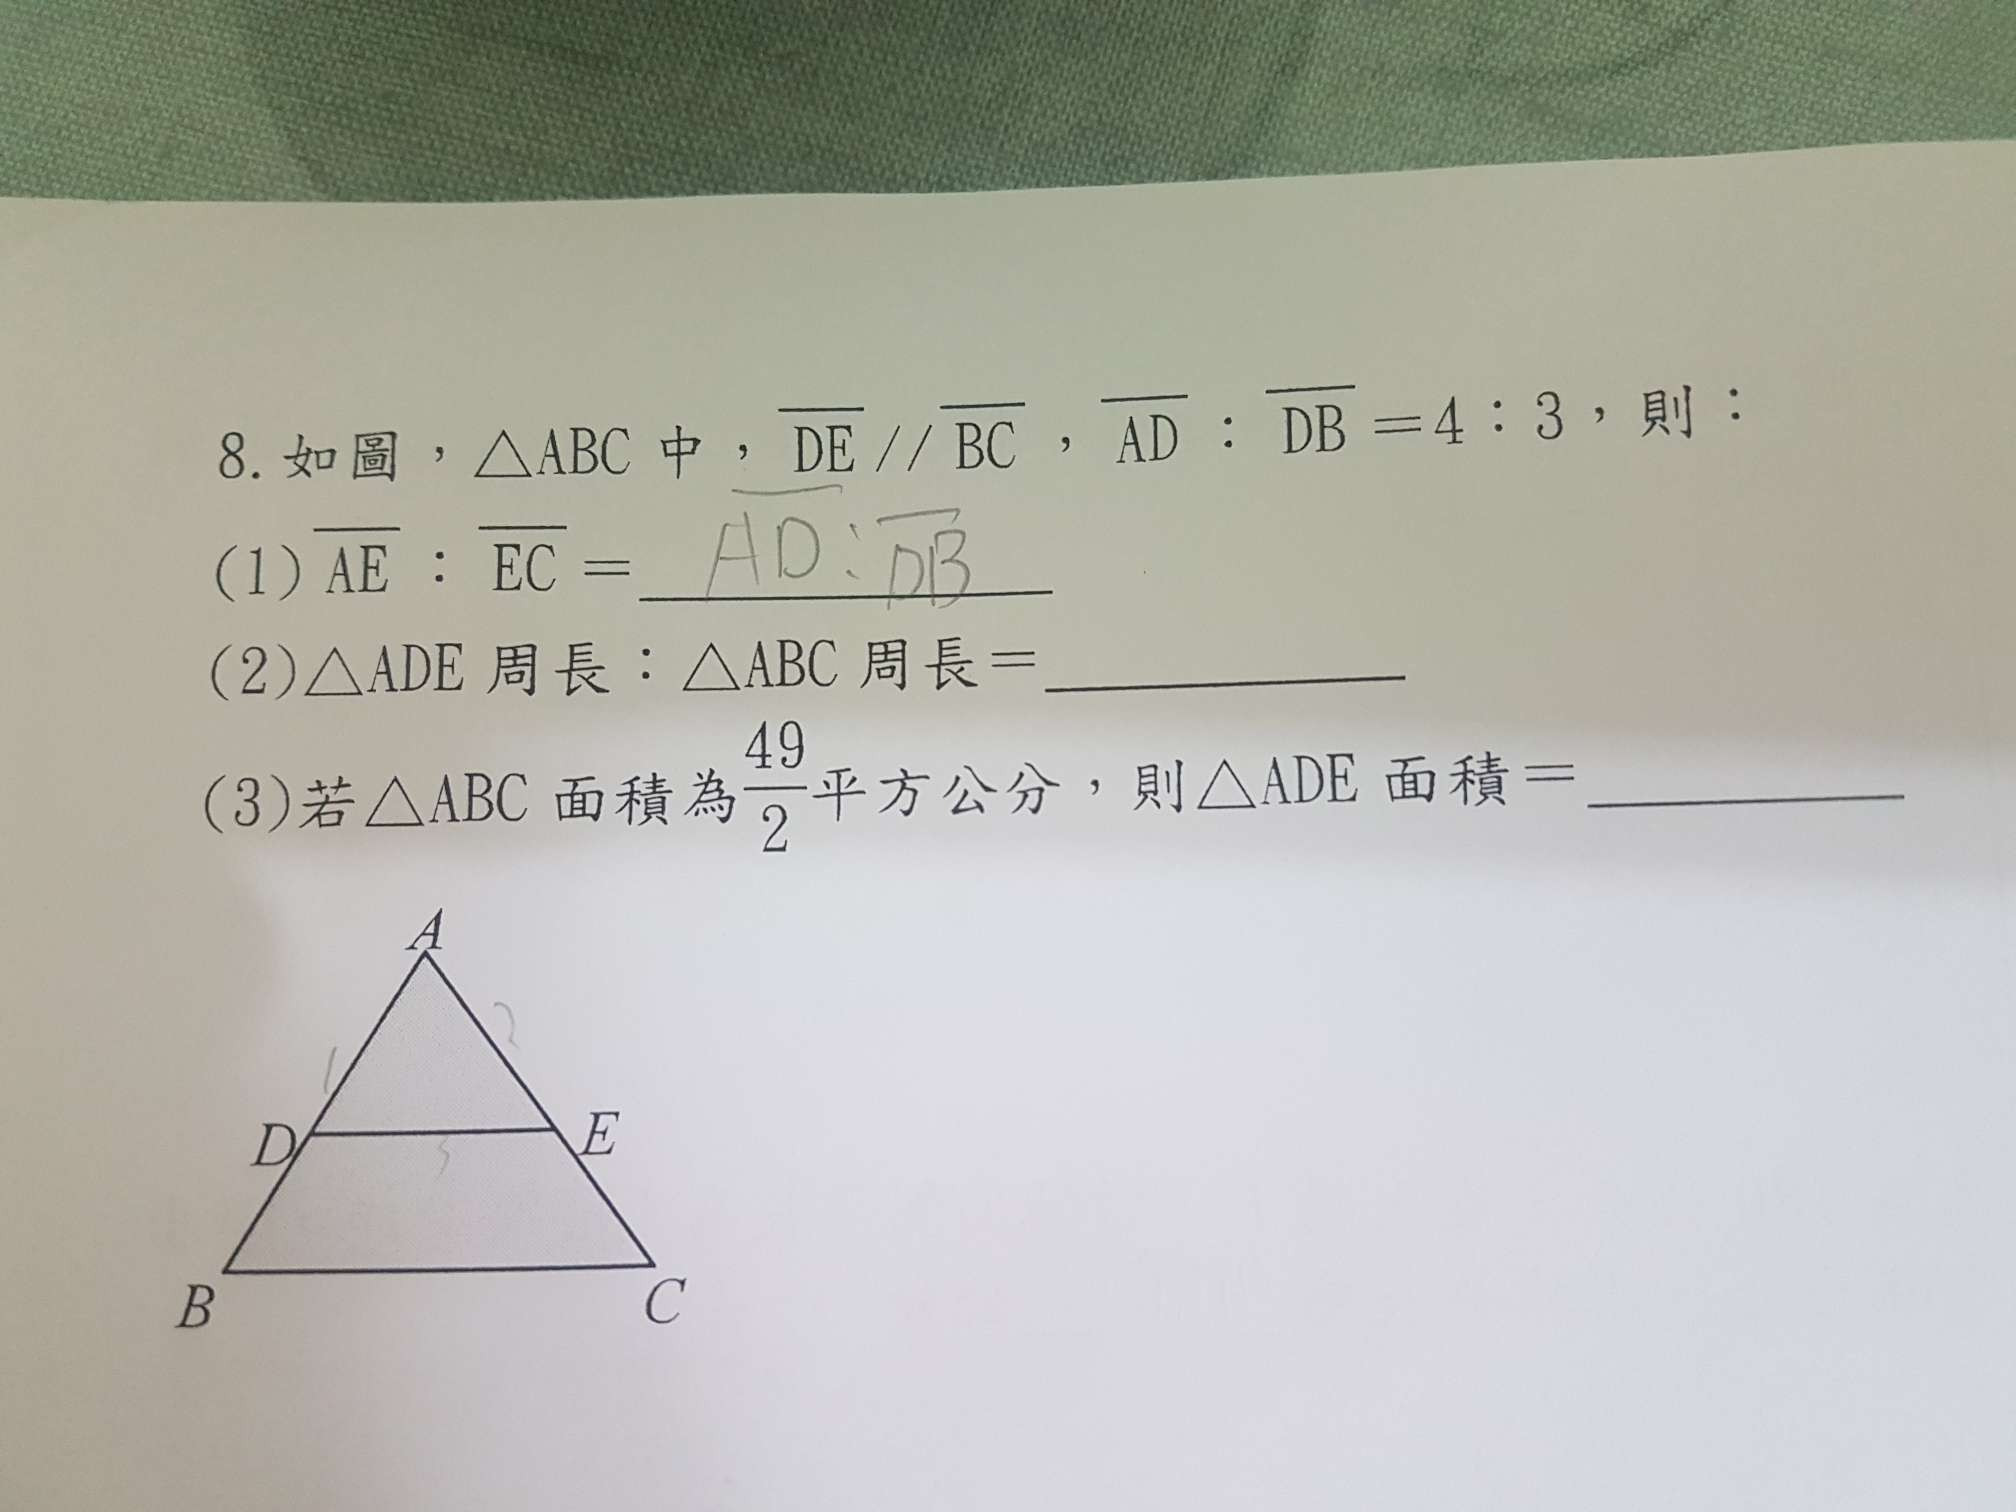 8. 如圖，△ABC 中，DE // BC，AD：DB＝4：3，則：
(1) AE：EC＝ AD：DB
(2)△ADE 周長：△ABC 周長＝
(3)若△ABC 面積為49/2平方公分，則△ADE 面積＝
A
1 2
D E
3
B C